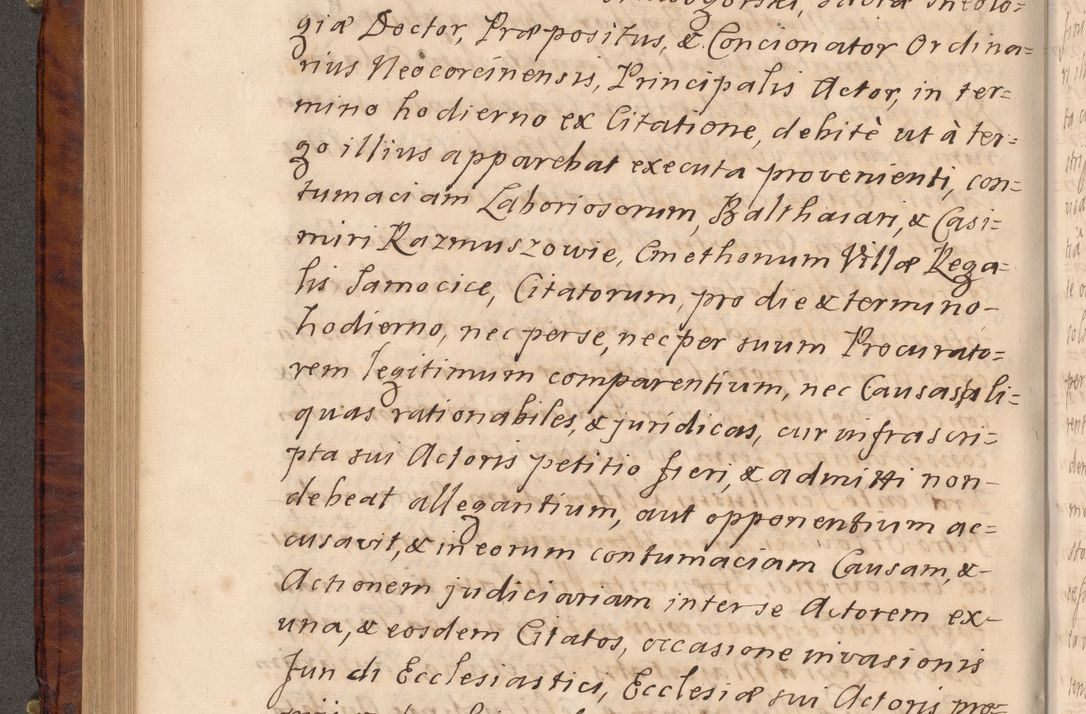 Sacræ Theolo=
giæ Doctor, Præpositus, & Concionator Ordina=
rius Neocorcinensis, Principalis Actor, in ter=
mino hodierno ex Citatione, debitè ut à ter=
go illius apparebat executa provenienti, con=
tumaciam Laboriosorum, Balthasari, & Casi=
miri Razmuszowie, Cmethonum Villæ Rega=
lis Samocice, Citatorum, pro die & termino-
hodierno, nec per se, nec per suum Procurato=
rem legitimum comparentium, nec Causas ali=
quas rationabiles, & juridicas, cur infrascri=
pta sui Actoris petitio fieri, & admitti non-
debeat allegantium, aut opponentium ac=
cusavit, & in eorum contumaciam Causam, &-
Actionem judiciariam inter se Actorem ex-
una, & eosdem Citatos, occasione invasionis
Fundi Ecclesiastici, Ecclesiæ sui Actoris pro=